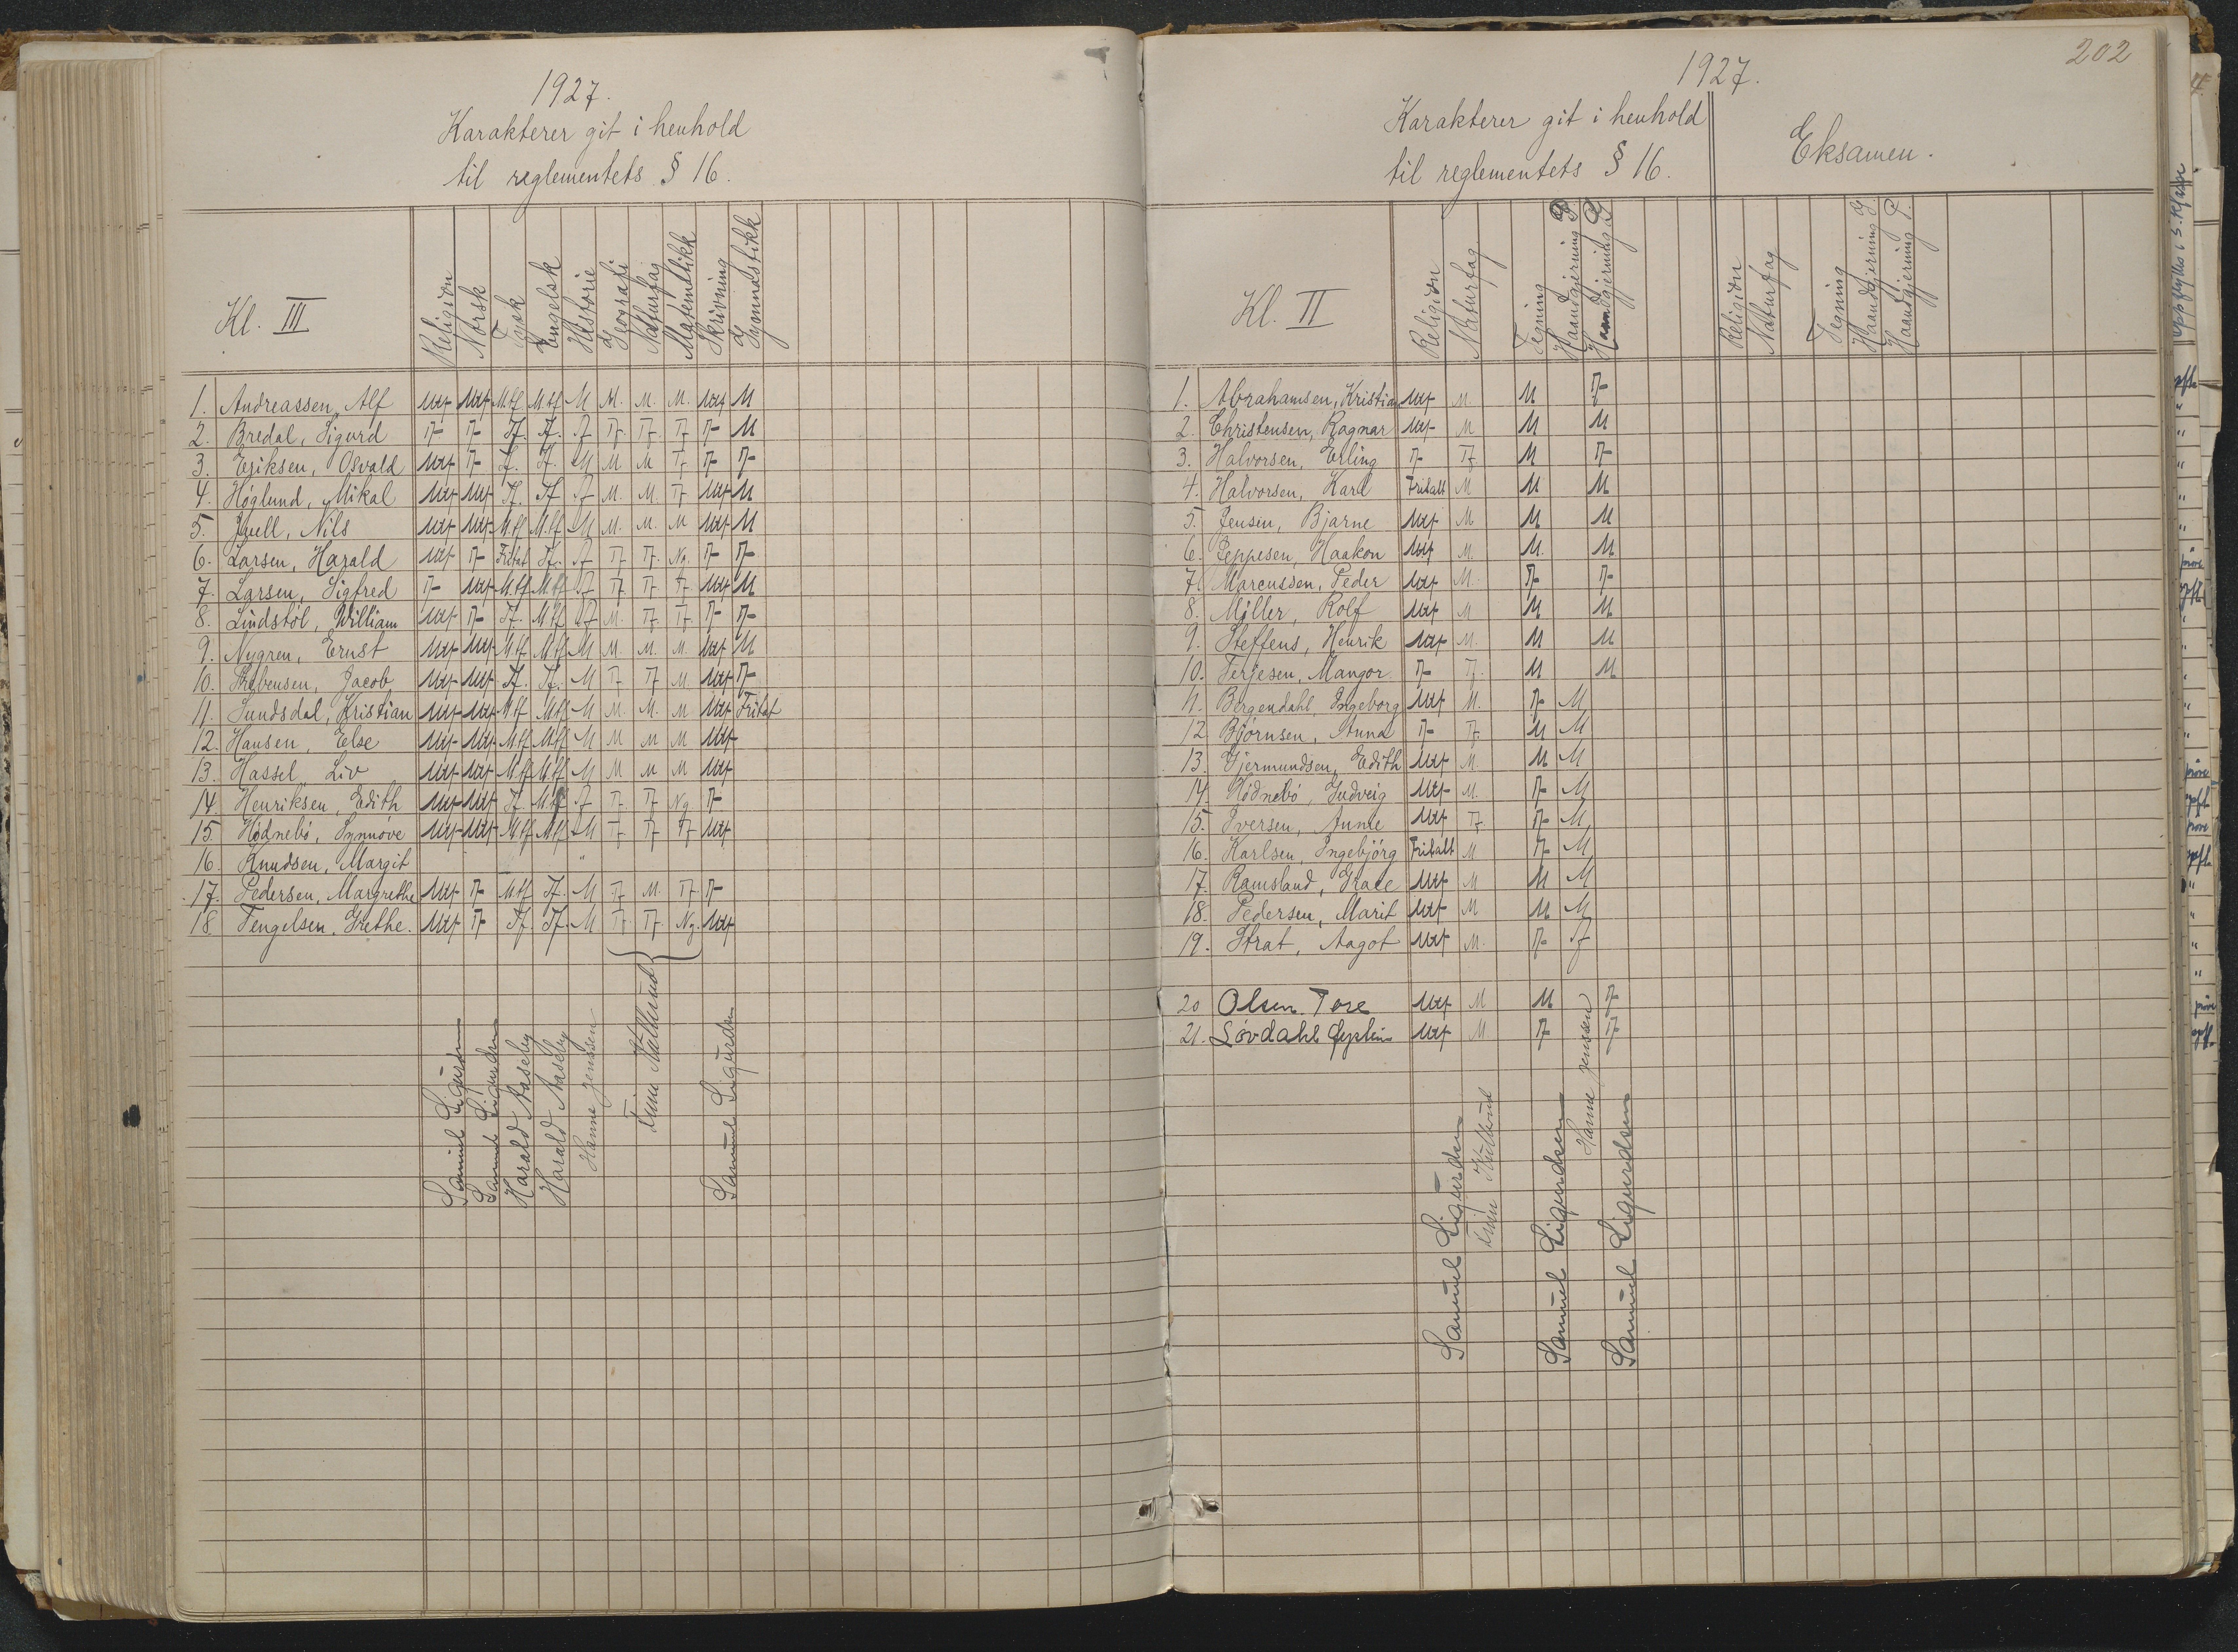 1927.
Karakterer git i henhold
til reglementets § 16.
Kl. III
Religion
Norsk
Tysk
Engelsk
Historie
Geografi
Naturfag
Matematikk
Skrivning
Gymnastikk
1. Andreassen, Alf Mtf Mtf M.tf M.tf M M. M. M. Mtf M
2. Bredal, Sigurd Tf Tf Tf. Tf. Tf Tf. Tf. Tf Tf M
3. Eriksen, Osvald Mtf Tf Tf. Tf. M M M Tf Tf Tf
4. Höglund, Mikal Mtf Mtf Tf. Tf Tf M. M. Tf. Mtf M
5. Juell, Nils Mtf Mtf M.tf M.tf M M. M. M Mtf M
6. Larsen, Harald Mtf Tf Fritat Tf. Tf Tf Tf. Ng. Tf Tf
7. Larsen, Sigfred Tf Mtf M.tf M.tf Tf Tf. Tf. Tf. Mtf M
8. Lindstöl, William Mtf Tf Tf. M.tf Tf M. Tf. Tf. Tf Tf
9. Nygren, Ernst Mtf Mtf M.tf M.tf M M. M. M. Mtf M
10. Jacob Mtf Mtf Tf. Tf. M Tf Tf M. Mtf Tf
11. Sundsdal, Kristian Mtf Mtf M.tf M.tf M M. M. M Mtf Fritat
12. Hansen, Else Mtf Mtf M.tf M.tf M M M M Mtf
13. Hassel, Liv Mtf Mtf M.tf M.tf M M M M Mtf
14. Henriksen, Edith Mtf Mtf Tf. M.tf Tf Tf Tf Ng Tf
15 Hödnebö, Synnöve Mtf Mtf M.tf M.tf M Tf Tf Tf Mtf
16. Knudsen, Margit "
17. Pedersen, Margrethe Mtf Tf M.tf Tf. M Tf M. Tf Tf
18 Tengelsen, Grethe. Mtf Tf Tf. Tf. M Tf. Tf. Ng. Mtf
Samuel Sigurdsen
Samuel Sigurdsen
Harald Aaseby
Harald Aaseby
Hanne Jenssen
Samuel Sigurdsen
202
1927.
Karakterer git i henhold
til reglementets § 16.
Eksamen.
Kl. II
Religion
Naturfag
Tegning
Haandgjerning P
Haandgjerning G
Religion
Naturfag
Tegning
Haandgjerning G.
Haandgjerning P.
1. Abrahamsen, Kristian Mtf M. M Tf
2. Christensen, Ragnar Mtf M M M
3. Halvorsen, Erling Tf Tf M Tf
4. Halvorsen, Karl Fritatt M M M
5. Jensen, Bjarne Mtf M M M
6. Jeppesen, Haakon Mtf M. M. M
7. Marcussen, Peder Mtf M. Tf Tf
8. Möller, Rolf Mtf M M M
9. Steffens, Henrik Mtf M. M M
10. Terjesen, Mangor Tf Tf. M M
11. Bergendahl, Ingeborg Mtf M. Tf M
12 Björnsen, Anna Tf Tf. M M
13. Gjermundsen, Edith Mtf M. M M
14. Hödnebö, Gudveig Mtf M. Tf M
15. Iversen, Anne Mtf Tf. Tf M
16. Karlsen, Ingebjörg Fritatt M Tf M
17. Ramsland, Grace Mtf M M M
18. Pedersen, Marit Mtf M M M
19. Strat, Aagot Mtf M. Tf Tf
20 Olsen Tore Mtf M M Tf
21. Lövdahl Mtf M Tf Tf
Samuel Sigurdsen
Samuel Sigurdsen
Hanne Jenssen
Samuel Sigurdsen